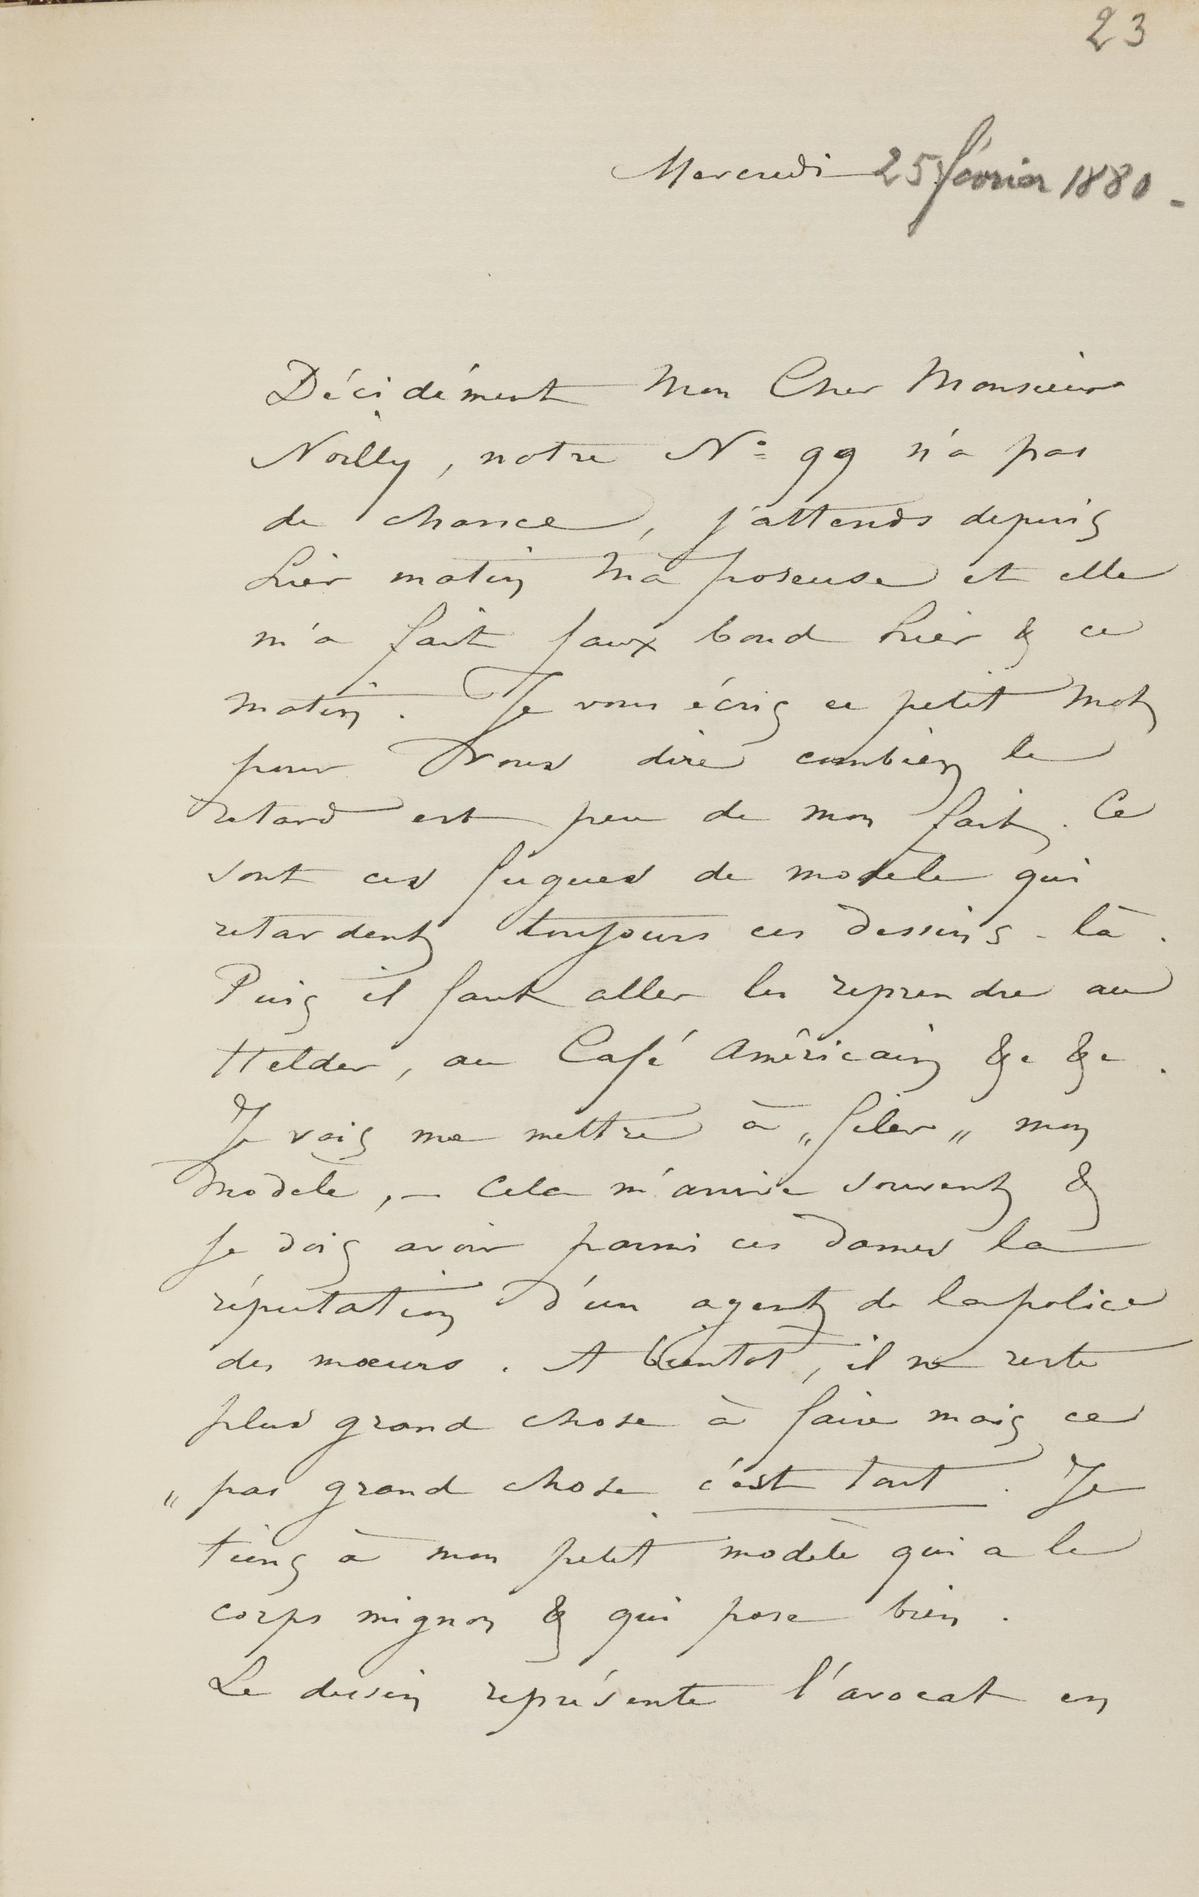 23
Mercredi 25 février 1880 -
Décidément Mon Cher Monsieur
Noilly, notre No 99 n'a pas
de chance, j'attends depuis
hier matin ma poseuse et elle
m'a fait faux bond hier & ce
matin. Je vous écris ce petit mot
pour vous dire combien le
retard est peu de mon fait. Ce
sont ces fugues de modèle qui
retardent toujours ces dessins-là.
Puis il faut aller les reprendre au
Helder, au Café Américain &c &c.
Je vais me mettre à „filer„ mon
modèle, - cela m'arrive souvent &
je dois avoir parmi ces dames la
réputation d'un agent de la police
des mœurs. A bientot, il ne reste
plus grand chose à faire mais ce
„ pas grand chose c'est tout. Je
tiens à mon petit modèle qui a le
corps mignon & qui pose bien.
Le dessin représente l'avocat en